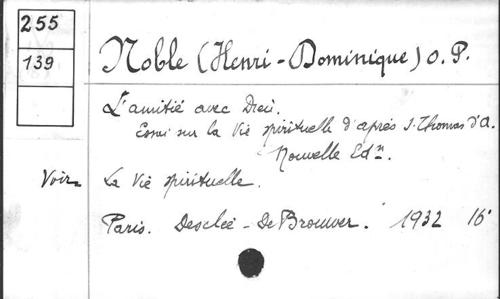 255
139
Noble (Henri-Dominique) O.P.
L'amitié avec Dieu.
Essai sur la Vie spirituelle d'après S. Thomas d'A.
Nouvelle Edn.
Voir La Vie spirituelle.
Paris. Desclée-De Brouwer. 1932 16°